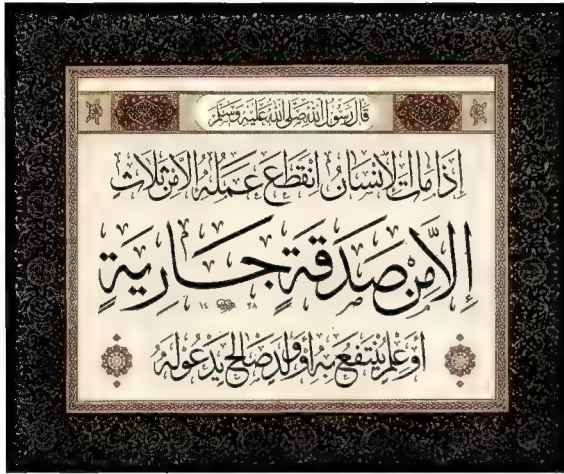 قَالَ رَسُولُ اللهِ صَلَّى اللهُ عَلَيْهِ وَسَلَّمَ
إِذَا مَاتَ الْإِنْسَانُ انْقَطَعَ عَمَلُهُ إِلَّا مِنْ ثَلَاثٍ
إِلَّا مِنْ صَدَقَةٍ جَارِيَةٍ
١٤ ٣٨
أَوْ عِلْمٍ يُنْتَفَعُ بِهِ أَوْ وَلَدٍ صَالِحٍ يَدْعُو لَهُ